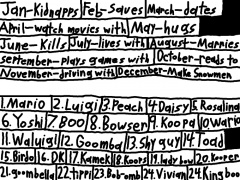 Jan-Kidnapps Feb-Saves March-dates
April-watch movies with May-hugs
June-Kills July-lives with August-Marries
september-plays games with October-reads to
November-driving with December-Make Snowmen
1.Mario 2.Luigi 3.Peach 4.Daisy 5.Rosalina
6.Yoshi 7.BOO 8.Bowser 9.Koopa 10.Wario
11.Waluigi 12.Goomba 13.Shy guy 14.Toad
15.Birdo 16.DK 17.Kamek 18.Koops 19.lady bow 20.Kooper
21.goombella 22.tippi 23.Bob-omb 24.Vivian 24.King boo